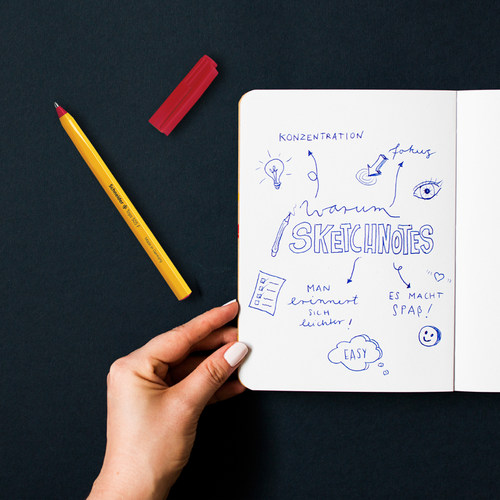 KONZENTRATION
fokus
warum
SKETCHNOTES
MAN
erinnert
SICH
leichter!
ES MACHT
SPAß!
EASY
Schneider